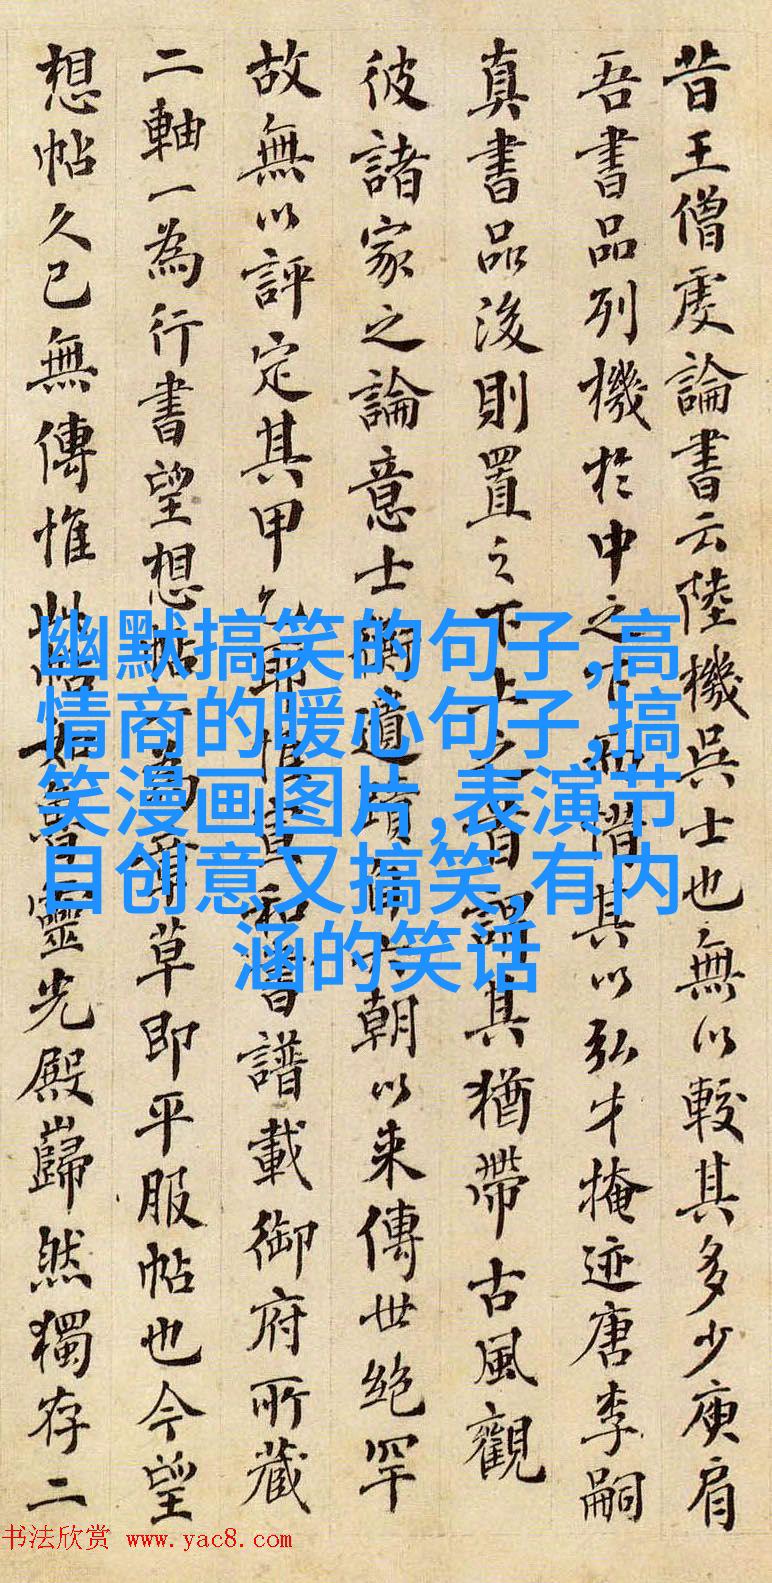 昔王僧虔論書云陸機吳士也無以較其多少庾肩
吾書品列機於中之下而惜其以弘才掩迹唐李嗣
真書品後則置之下上之首謂其猶帶古風觀
彼諸家之論意士衡遺蹟自六朝以来傳世絶罕
故無以評定其甲乙耶惟宣和書譜載御府所藏
二軸一為行書望想帖一為章草即平服帖也今望
想帖久已無傳惟此帖如魯靈光殿巋然獨存二
幽默搞笑的句子,高
情商的暖心句子,搞
笑漫画图片,表演节
目创意又搞笑,有内
涵的笑话
书法欣赏 www.yac8.com